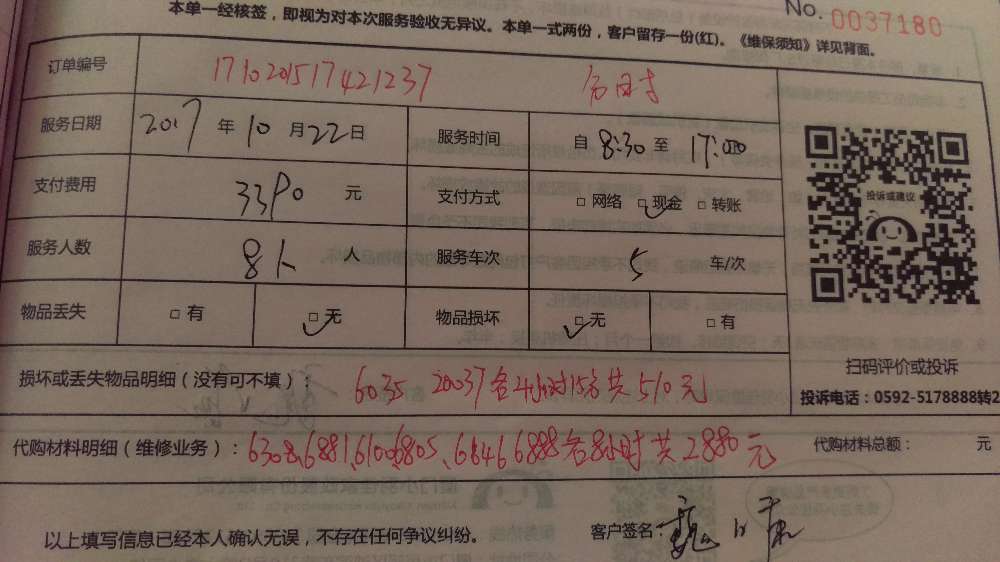 本单一经核签，即视为对本次服务验收无异议。本单一式两份，客户留存一份(红)。《维保须知》详见背面。
No. 0037180
订单编号 1710201517421237
服务日期 2017 年 10 月 22 日 服务时间 自 8:30 至 17:00
支付费用 3390 元 支付方式 □ 网络 □ 现金 □ 转账
服务人数 8人 人 服务车次 5 车/次
物品丢失 □ 有 □ 无 物品损坏 □ 无 □ 有
投诉或建议
扫码评价或投诉
投诉电话：0592-5178888转2
损坏或丢失物品明细（没有可不填）： 6035 20037各4小时15分共510元
代购材料明细（维修业务）：6308、6881、6100、6805、6646 6888各8小时共2880元 代购材料总额： 元
以上填写信息已经本人确认无误，不存在任何争议纠纷。 客户签名：魏